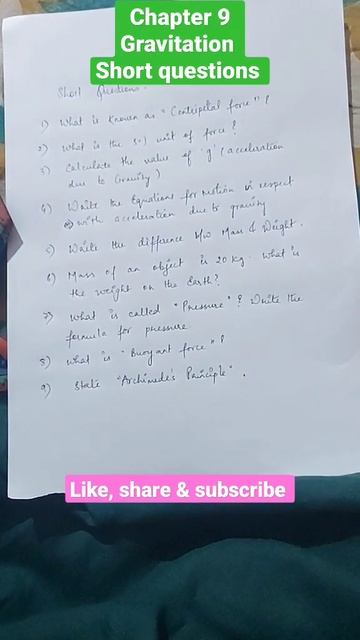 Chapter 9
Gravitation
Short questions
Short Questions.
1) What is known as "Centripetal force"?
2) What is the SI unit of force?
3) Calculate the value of 'g' (acceleration
due to Gravity)
4) Write the Equations for Motion in respect
with acceleration due to gravity
5) Write the difference b/w Mass & Weight.
6) Mass of an object is 20 kg. What is
the weight on the Earth?
7) What is called "Pressure"? Write the
formula for pressure
8) What is "Buoyant force"?
9) State "Archimede's Principle".
Like, share & subscribe